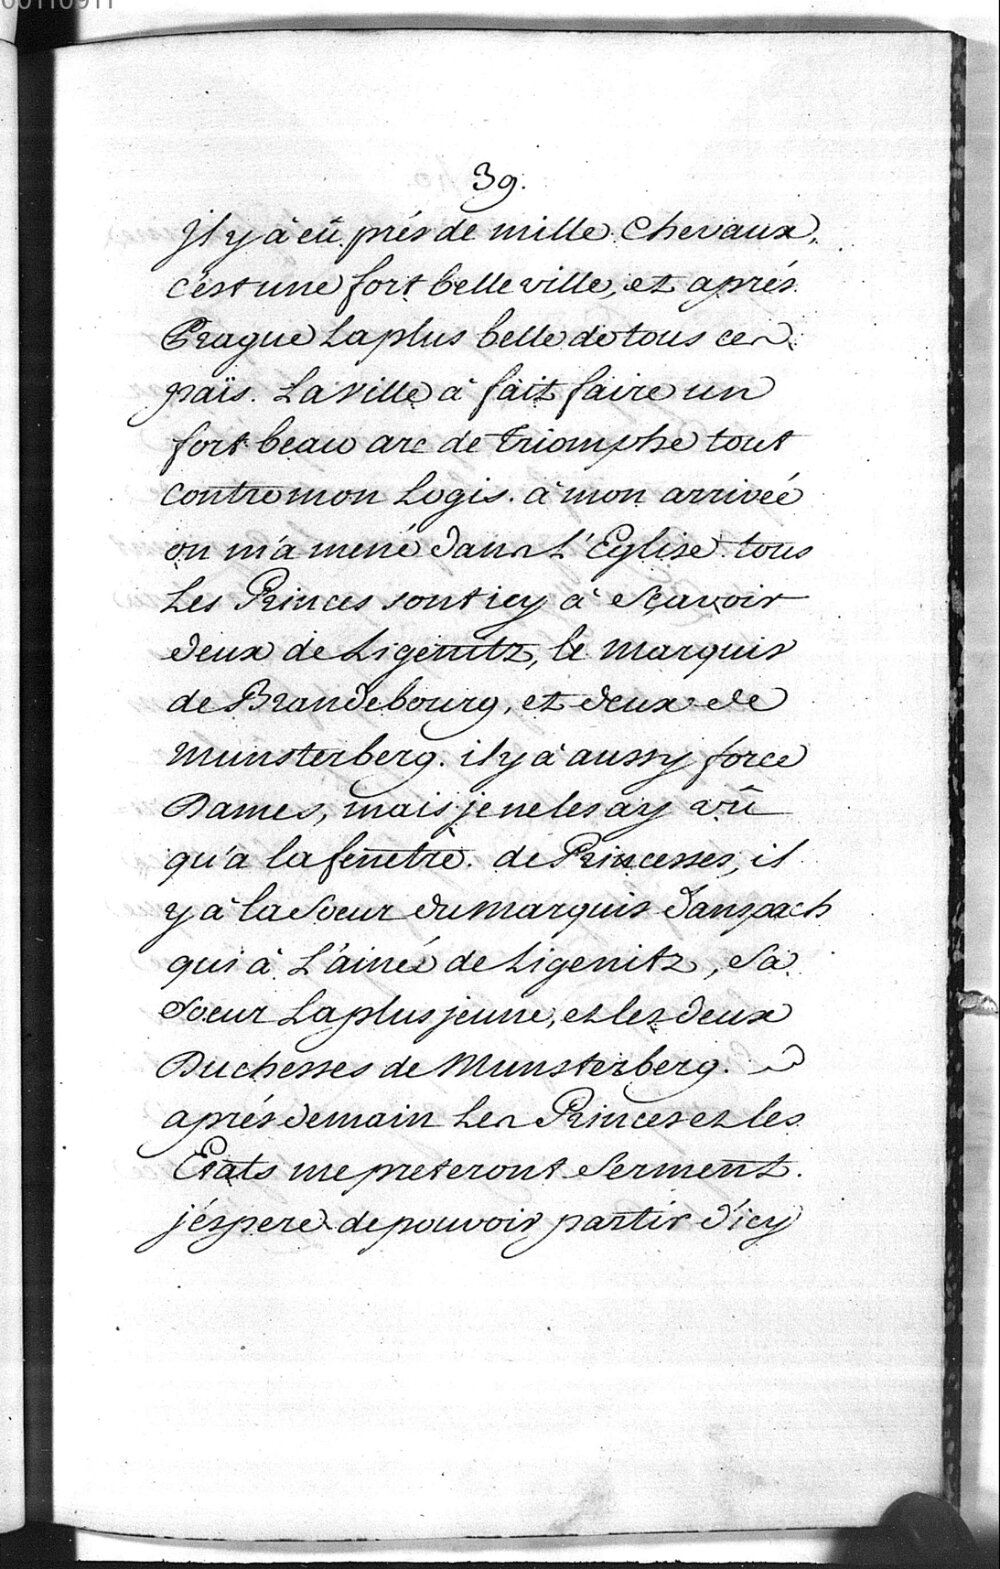 39.
Jl y à eû prés de mille Chevaux,
c'est une fort belle ville, et aprés
Prague la plus belle de tous ces
païs. La Ville à fait faire un
fort beau arc de triomphe tout
contre mon Logis. à mon arrivée
on m'a mené dans L'Eglise. tous
Les Princes sont icy à Sçavoir
deux de Ligenitz, le Marquis
de Brandebourg, et deux de
Munsterberg. il y à aussy force
Dames, mais je ne les ay vû
qu'a la fenetre. de Princesses, il
y à la Soeur du Marquis d'anspach
qui à L'ainé de Ligenitz, Sa
Soeur La plus jeune, et les deux
Duchesses de Munsterberg.
aprés demain Les Princes et les
Etats me preteront Serment.
j'éspere de pouvoir partir d'icy